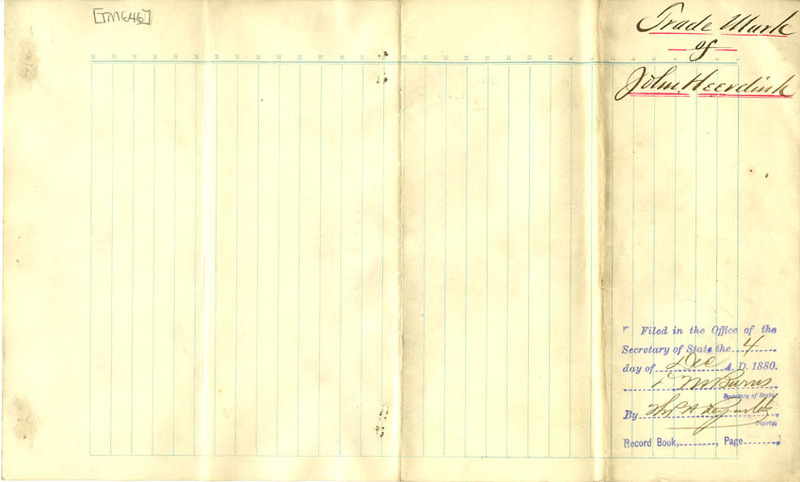 [TM646]
Trade Mark
of
John Heerdink
Filed in the Office of the
Secretary of State the 4
day of Dec A.D. 1880.
D M Burns
Secretary of State
By Thos H Reynolds
Deputy.
Record Book, Page